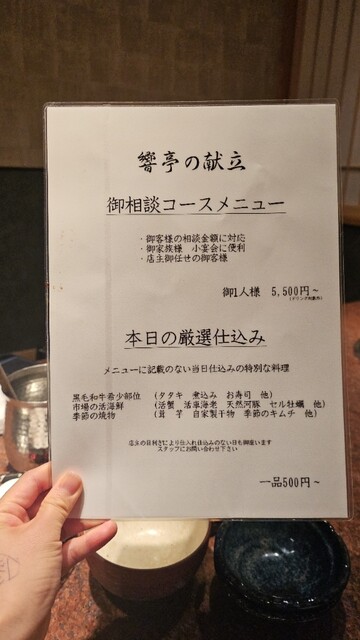 響亭の献立
御相談コースメニュー
・御客様の相談金額に対応
・御家族様 小宴会に便利
・店主御任せの御客様
御1人様 5,500円~
(ドリンク別途用)
本日の厳選仕込み
メニューに記載のない当日仕込みの特別な料理
黒毛和牛希少部位 (タタキ 煮込み お寿司 他)
市場の活海鮮 (活蟹 活車海老 天然河豚 セル牡蠣 他)
季節の焼物 (茸 芋 自家製干物 季節のキムチ 他)
店主の目利きにより仕入れ仕込みのない日も御座います
スタッフにお問い合わせ下さい
一品500円~